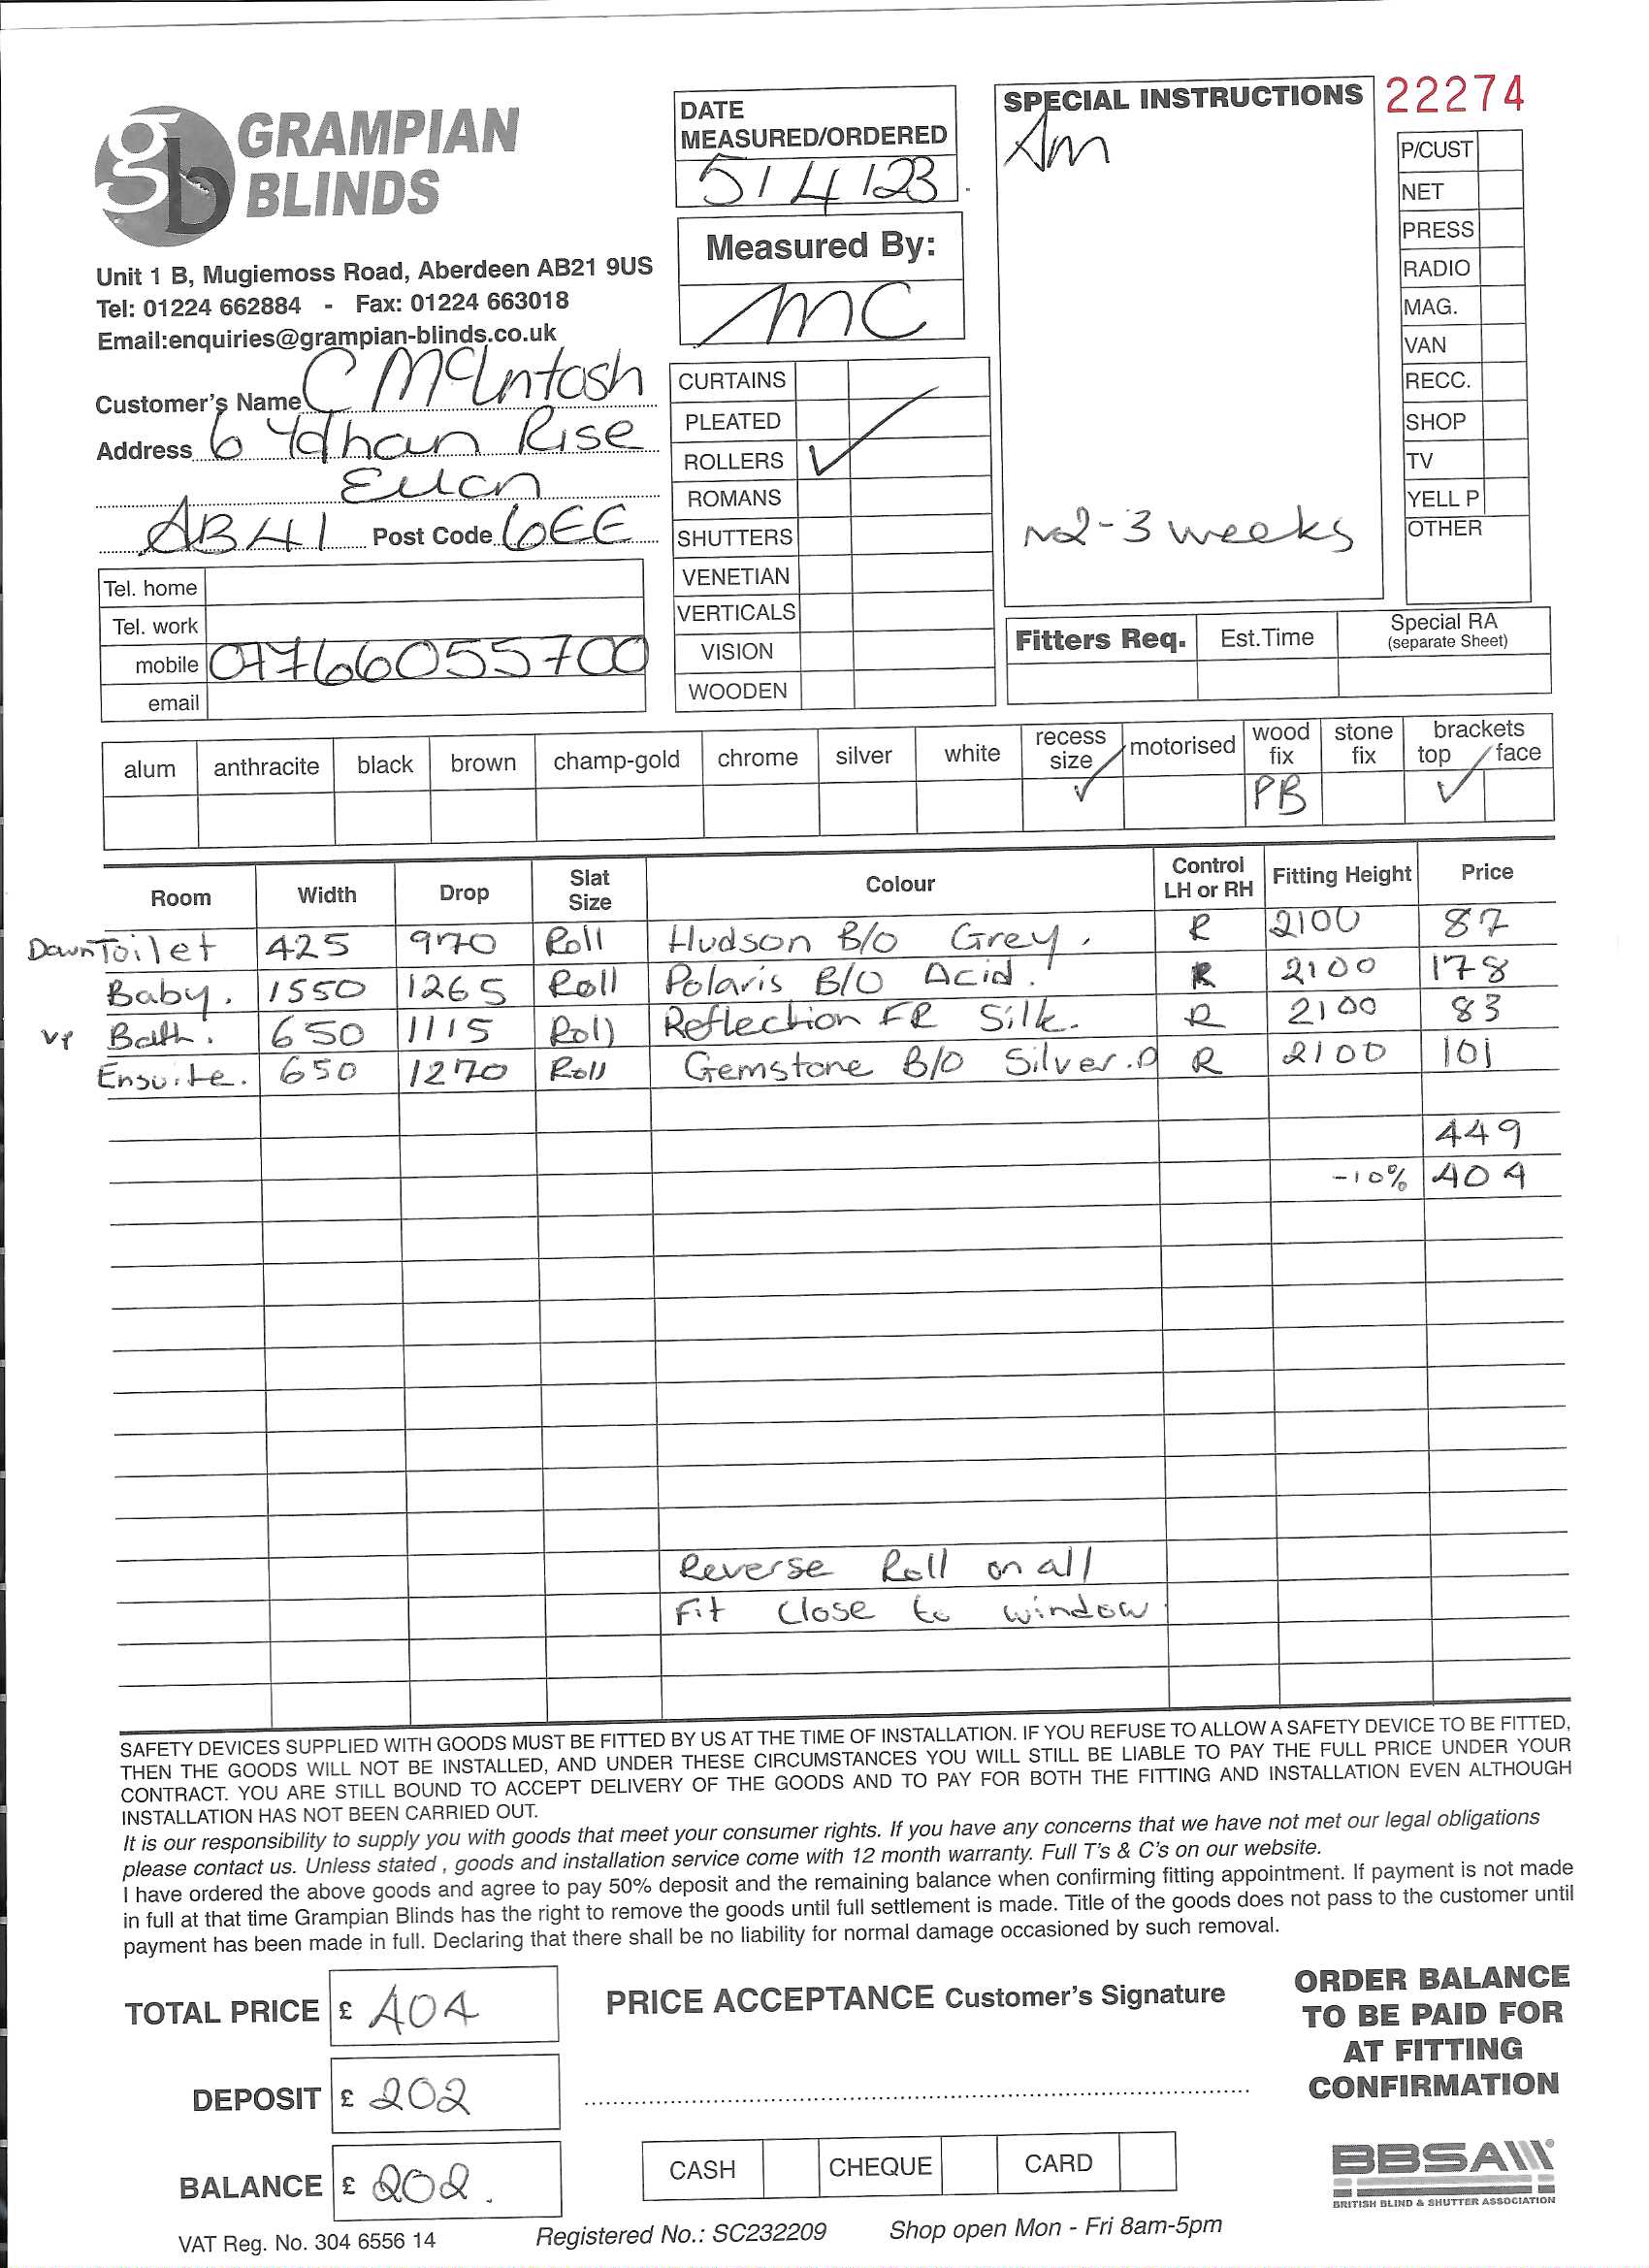 GRAMPIAN
BLINDS
Unit 1 B, Mugiemoss Road, Aberdeen AB21 9US
Tel: 01224 662884 - Fax: 01224 663018
Email:enquiries@grampian-blinds.co.uk
Customer's Name C McIntosh
Address 6 Ythan Rise
Ellon
AB41 Post Code 6EE
Tel. home
Tel. work
mobile 07766055700
email
DATE
MEASURED/ORDERED
5/4/23
Measured By:
MC
CURTAINS
PLEATED
ROLLERS ✓
ROMANS
SHUTTERS
VENETIAN
VERTICALS
VISION
WOODEN
SPECIAL INSTRUCTIONS
Am
~2-3 weeks
22274
P/CUST
NET
PRESS
RADIO
MAG.
VAN
RECC.
SHOP
TV
YELL P
OTHER
Fitters Req. Est.Time Special RA
(separate Sheet)
alum anthracite black brown champ-gold chrome silver white recess size motorised wood fix stone fix brackets top / face
✓ PB ✓
Room Width Drop Slat Size Colour Control LH or RH Fitting Height Price
Down Toilet 425 970 Roll Hudson B/O Grey. R 2100 87
Baby. 1550 1265 Roll Polaris B/O Acid. R 2100 178
up Bath. 650 1115 Roll Reflection FR Silk. R 2100 83
Ensuite. 650 1270 Roll Gemstone B/O Silver. R 2100 101
449
-10% 404
Reverse Roll on all
Fit close to window
SAFETY DEVICES SUPPLIED WITH GOODS MUST BE FITTED BY US AT THE TIME OF INSTALLATION. IF YOU REFUSE TO ALLOW A SAFETY DEVICE TO BE FITTED,
THEN THE GOODS WILL NOT BE INSTALLED, AND UNDER THESE CIRCUMSTANCES YOU WILL STILL BE LIABLE TO PAY THE FULL PRICE UNDER YOUR
CONTRACT. YOU ARE STILL BOUND TO ACCEPT DELIVERY OF THE GOODS AND TO PAY FOR BOTH THE FITTING AND INSTALLATION EVEN ALTHOUGH
INSTALLATION HAS NOT BEEN CARRIED OUT.
It is our responsibility to supply you with goods that meet your consumer rights. If you have any concerns that we have not met our legal obligations
please contact us. Unless stated , goods and installation service come with 12 month warranty. Full T's & C's on our website.
I have ordered the above goods and agree to pay 50% deposit and the remaining balance when confirming fitting appointment. If payment is not made
in full at that time Grampian Blinds has the right to remove the goods until full settlement is made. Title of the goods does not pass to the customer until
payment has been made in full. Declaring that there shall be no liability for normal damage occasioned by such removal.
TOTAL PRICE £ 404
DEPOSIT £ 202
BALANCE £ 202.
PRICE ACCEPTANCE Customer's Signature
CASH CHEQUE CARD
ORDER BALANCE
TO BE PAID FOR
AT FITTING
CONFIRMATION
BBSA
BRITISH BLIND & SHUTTER ASSOCIATION
VAT Reg. No. 304 6556 14 Registered No.: SC232209 Shop open Mon - Fri 8am-5pm